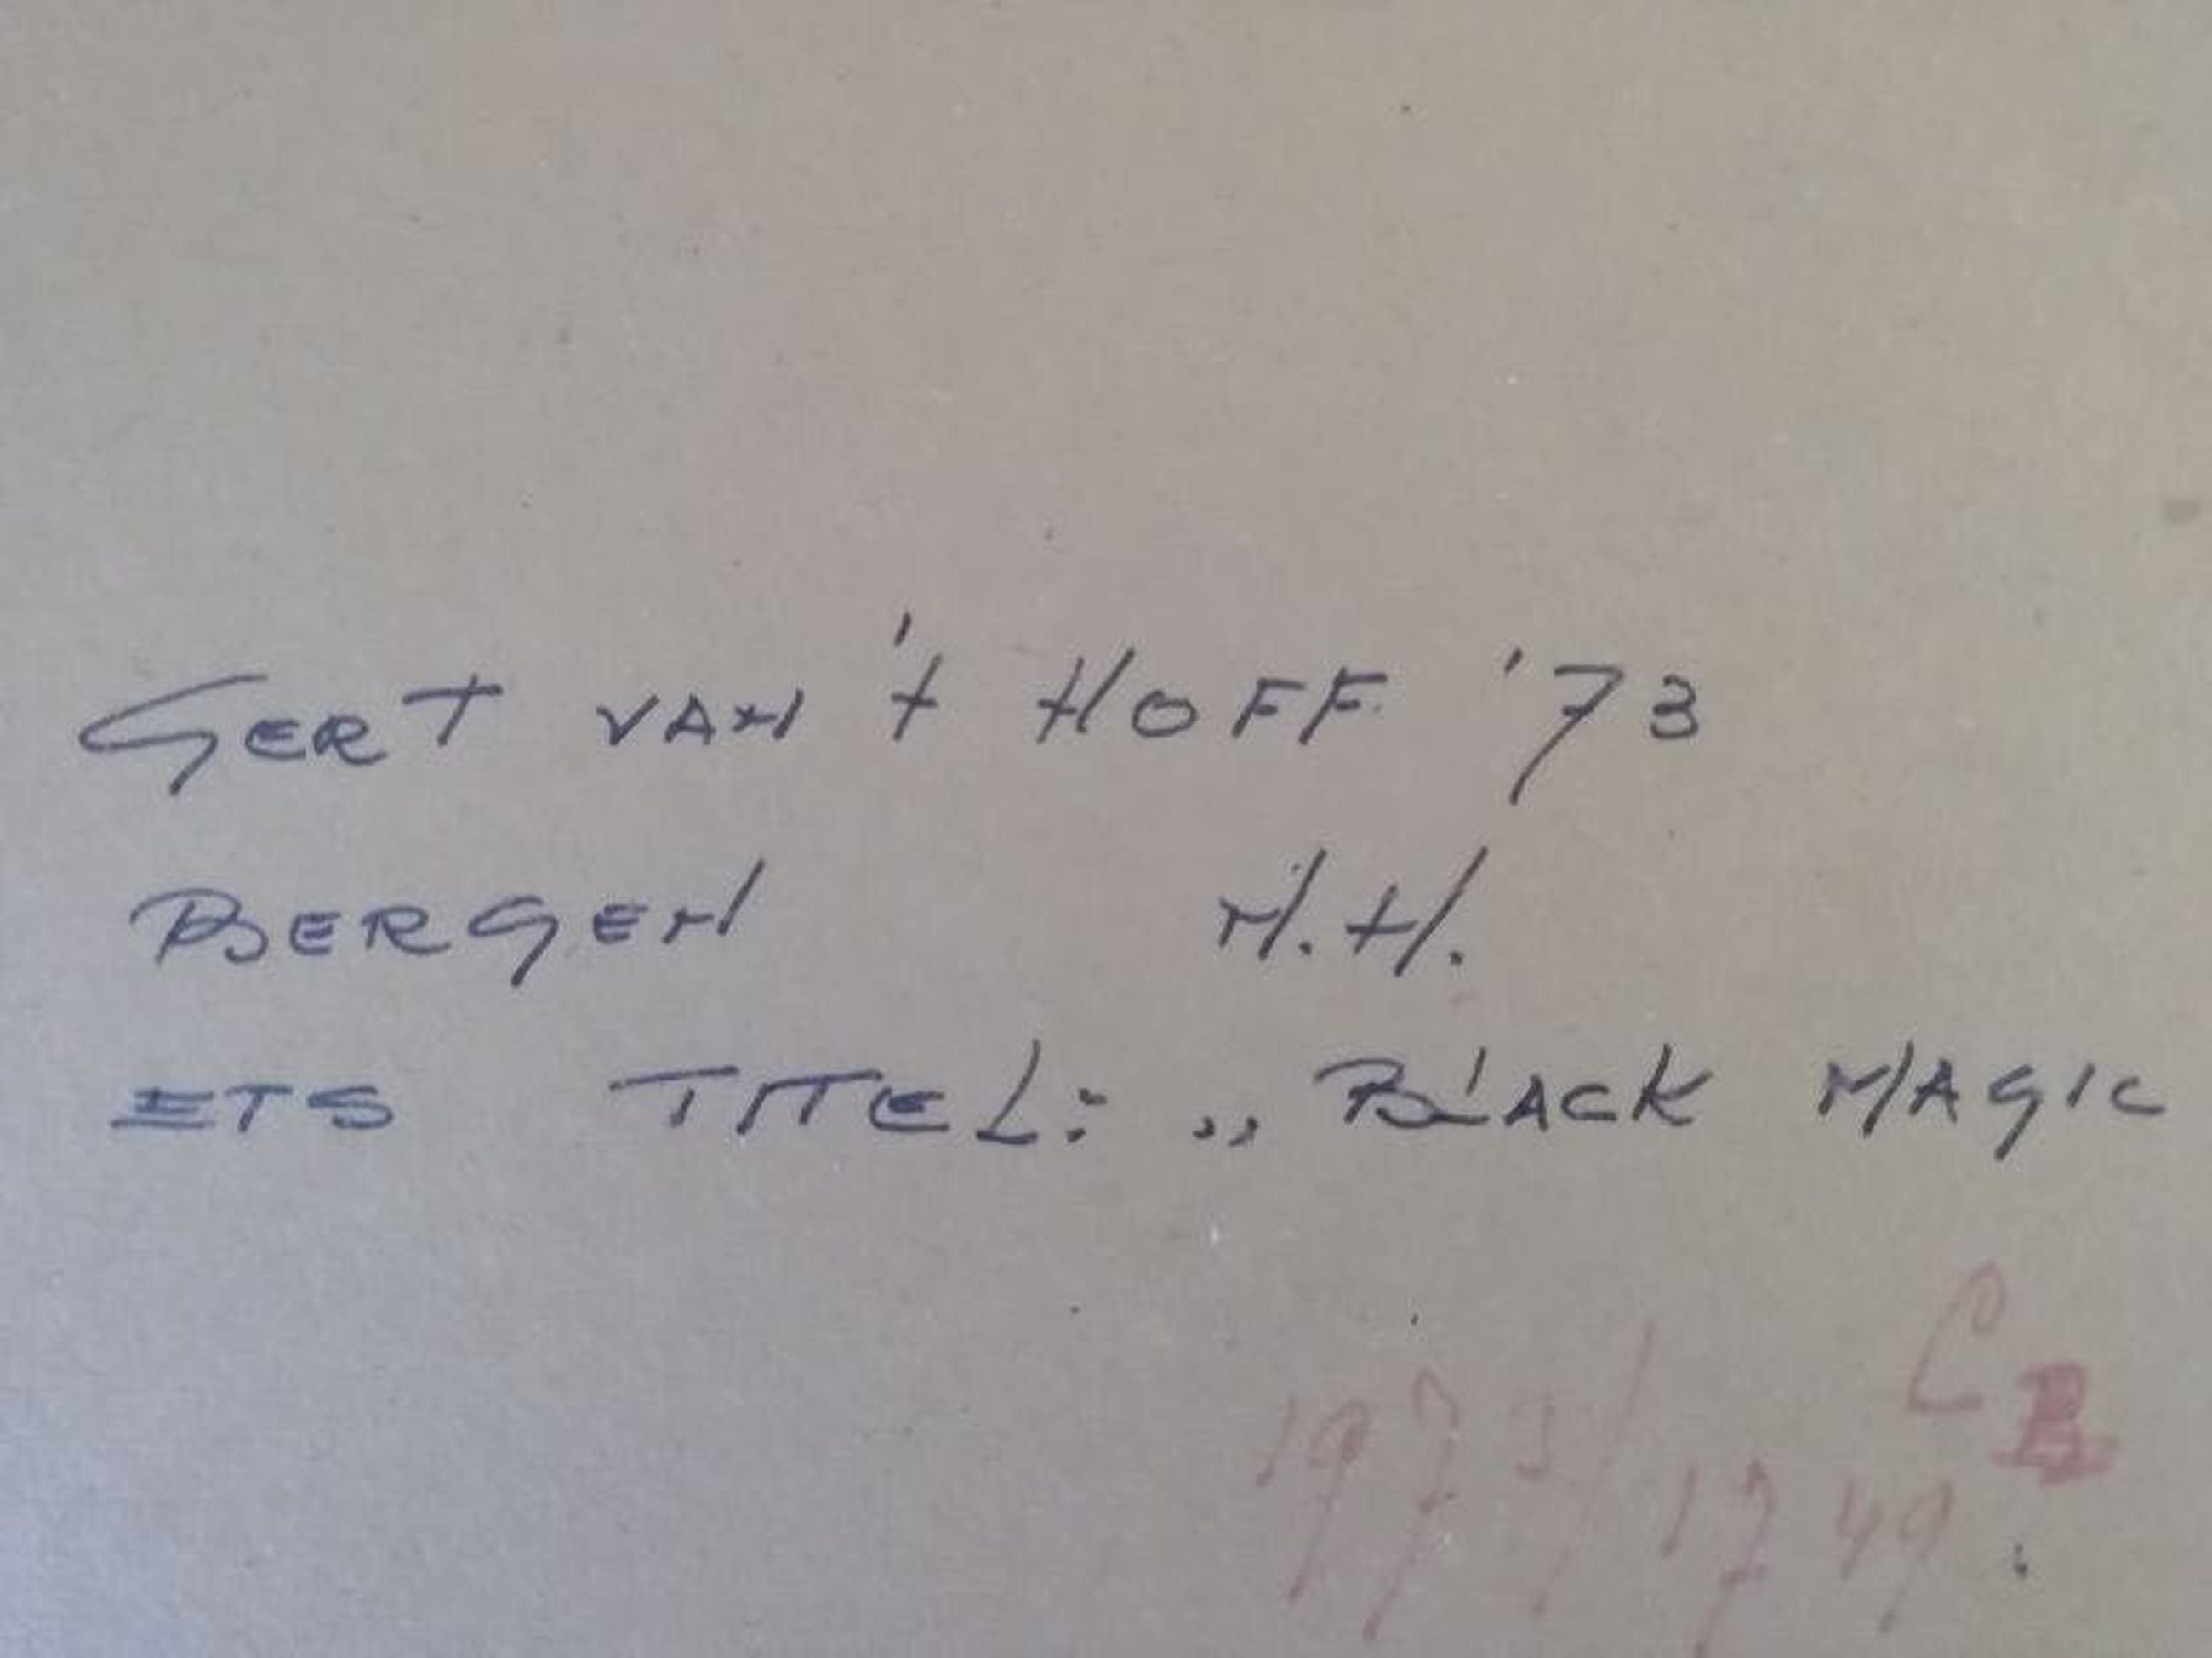 GERT VAN 't HOFF '73
BERGEN N.H.
ETS TITEL: „ BLACK MAGIC
C
B
1973/1749